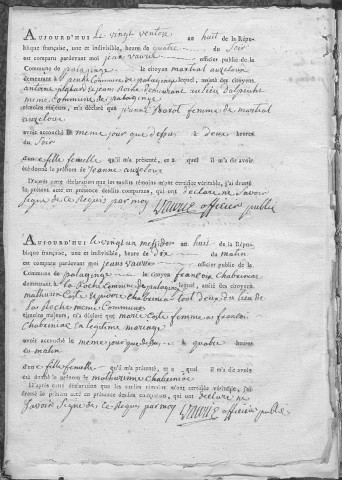 AUJOURD'HUI le vingt ventose an huit de la Répu-
blique française, une et indivisible, heure de quatre du Soir
est comparu pardevant moi jean vaurie officier public de la
Commune de palazinge le citoyen martial auzeloux
demeurant a commune de palazinge lequel, assisté des citoyens
antoine de jean Roche demeurant au lieu
meme Commune de palazinge
témoins majeurs, m'a déclaré que jeanne femme de martial
auzeloux
avoit accouché le meme jour que dessus a deux heures
du Soir
d'une fille femelle qu'il m'a présenté, et à quel il m'a dit avoir
été donné le prénom de Jeanne auzeloux
D'après cette déclaration que les susdits témoins m'ont certifiée véritable, j'ai dressé
le présent acte en présence desdits comparans, qui ont declare ne Savoir
Signe de ce Requis par moy Vaurie officier public
AUJOURD'HUI le vingt un messidor an huit de la Répu-
blique française, une et indivisible, heure de Dix du matin
est comparu pardevant moi jean vaurie officier public de la
Commune de palazinge le citoyen francois Chabreniac
demeurant à la Roche Commune de palazinge lequel, assisté des citoyens
mathurin Coste et pierre Chabreniac tout deux du lieu de
La Roche meme Commune
témoins majeurs, m'a déclaré que marie Coste femme a francois
Chabreniac en legitime mariage
avoit accouché le meme jour que dessus a quatre heures
du matin
d'une fille femelle qu'il m'a présenté, et à quel il m'a dit avoir
été donné le prénom de mathurinne Chabreniac
D'après cette déclaration que les susdits témoins m'ont certifiée véritable, j'ai dressé
le présent acte en présence desdits comparans, qui ont declare ne
Savoir Signe de ce Requis par moy Vaurie officier public